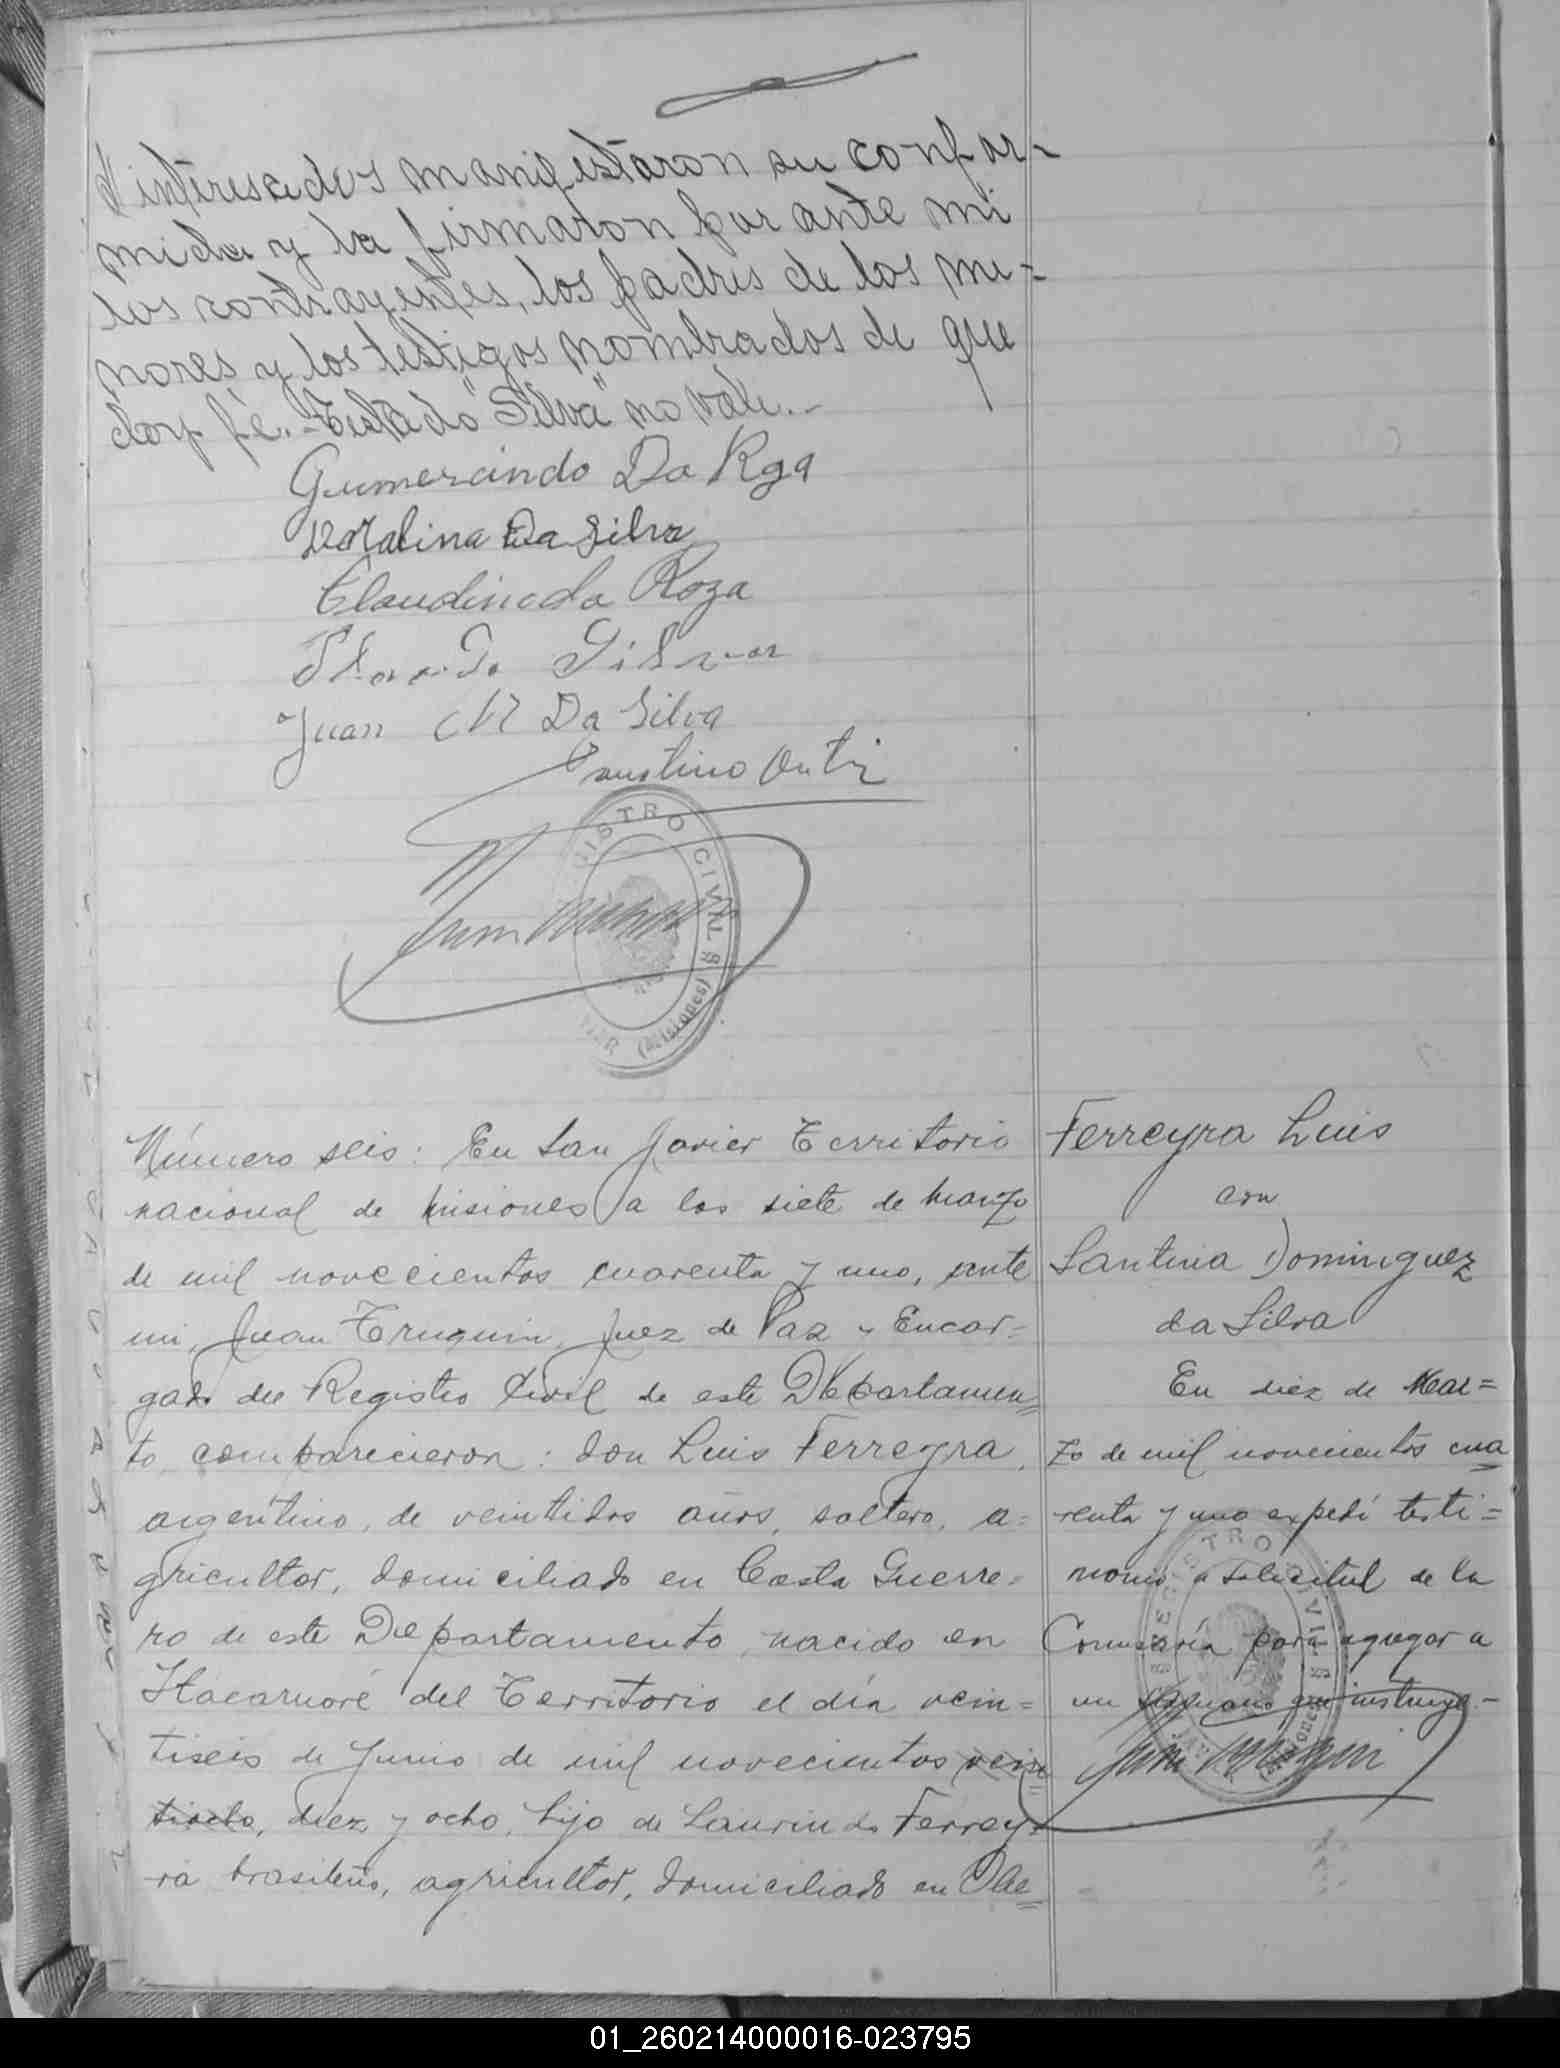 interesados manifestaron su confor-
mida y la firmaron por ante mi
los contrayentes, los padres de los me-
nores y los testigos nombrados de que
doy fé. Testado "Silva" no vale.-
Gumercindo Da Rga
Doralina Da Silva
Claudino da Roza
Silva
Juan M Da Silva
Faustino
REGISTRO CIVIL
(Misiones)
Número seis: En San Javier Territorio
nacional de Misiones a los siete de marzo
de mil novecientos cuarenta y uno, ante
mi, Juan Truquin, Juez de Paz y Encar=
gado del Registro Civil de este Departamen=
to, comparecieron: don Luis Ferreyra,
argentino, de veintidos años, soltero, a=
gricultor, domiciliado en Costa Guerre=
ro de este Departamento, nacido en
Itacaruaré del Territorio el día vein=
tiseis de Junio de mil novecientos vein=
tiocho, diez y ocho, hijo de Laurindo Ferrey=
ra brasileño, agricultor, domiciliado en
Ferreyra Luis
con
Santina Dominguez
da Silva
En diez de Mar=
zo de mil novecientos cua
renta y uno expedí testi=
monio a solicitud de la
Comisaría para agregar a
un sumario que instruye.-
REGISTRO CIVIL
(Misiones)
01_260214000016-023795